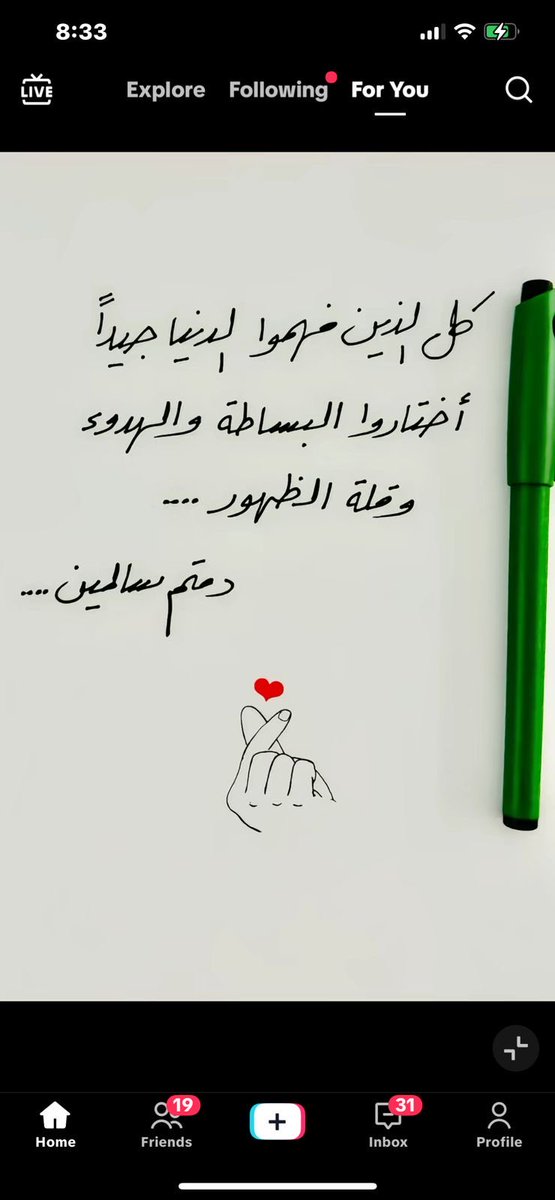 8:33
LIVE
Explore Following For You
كل الذين فهموا الدنيا جيداً
أختاروا البساطة والهدوء
وقلة الظهور ....
دمتم سالمين ....
19
31
Home Friends Inbox Profile